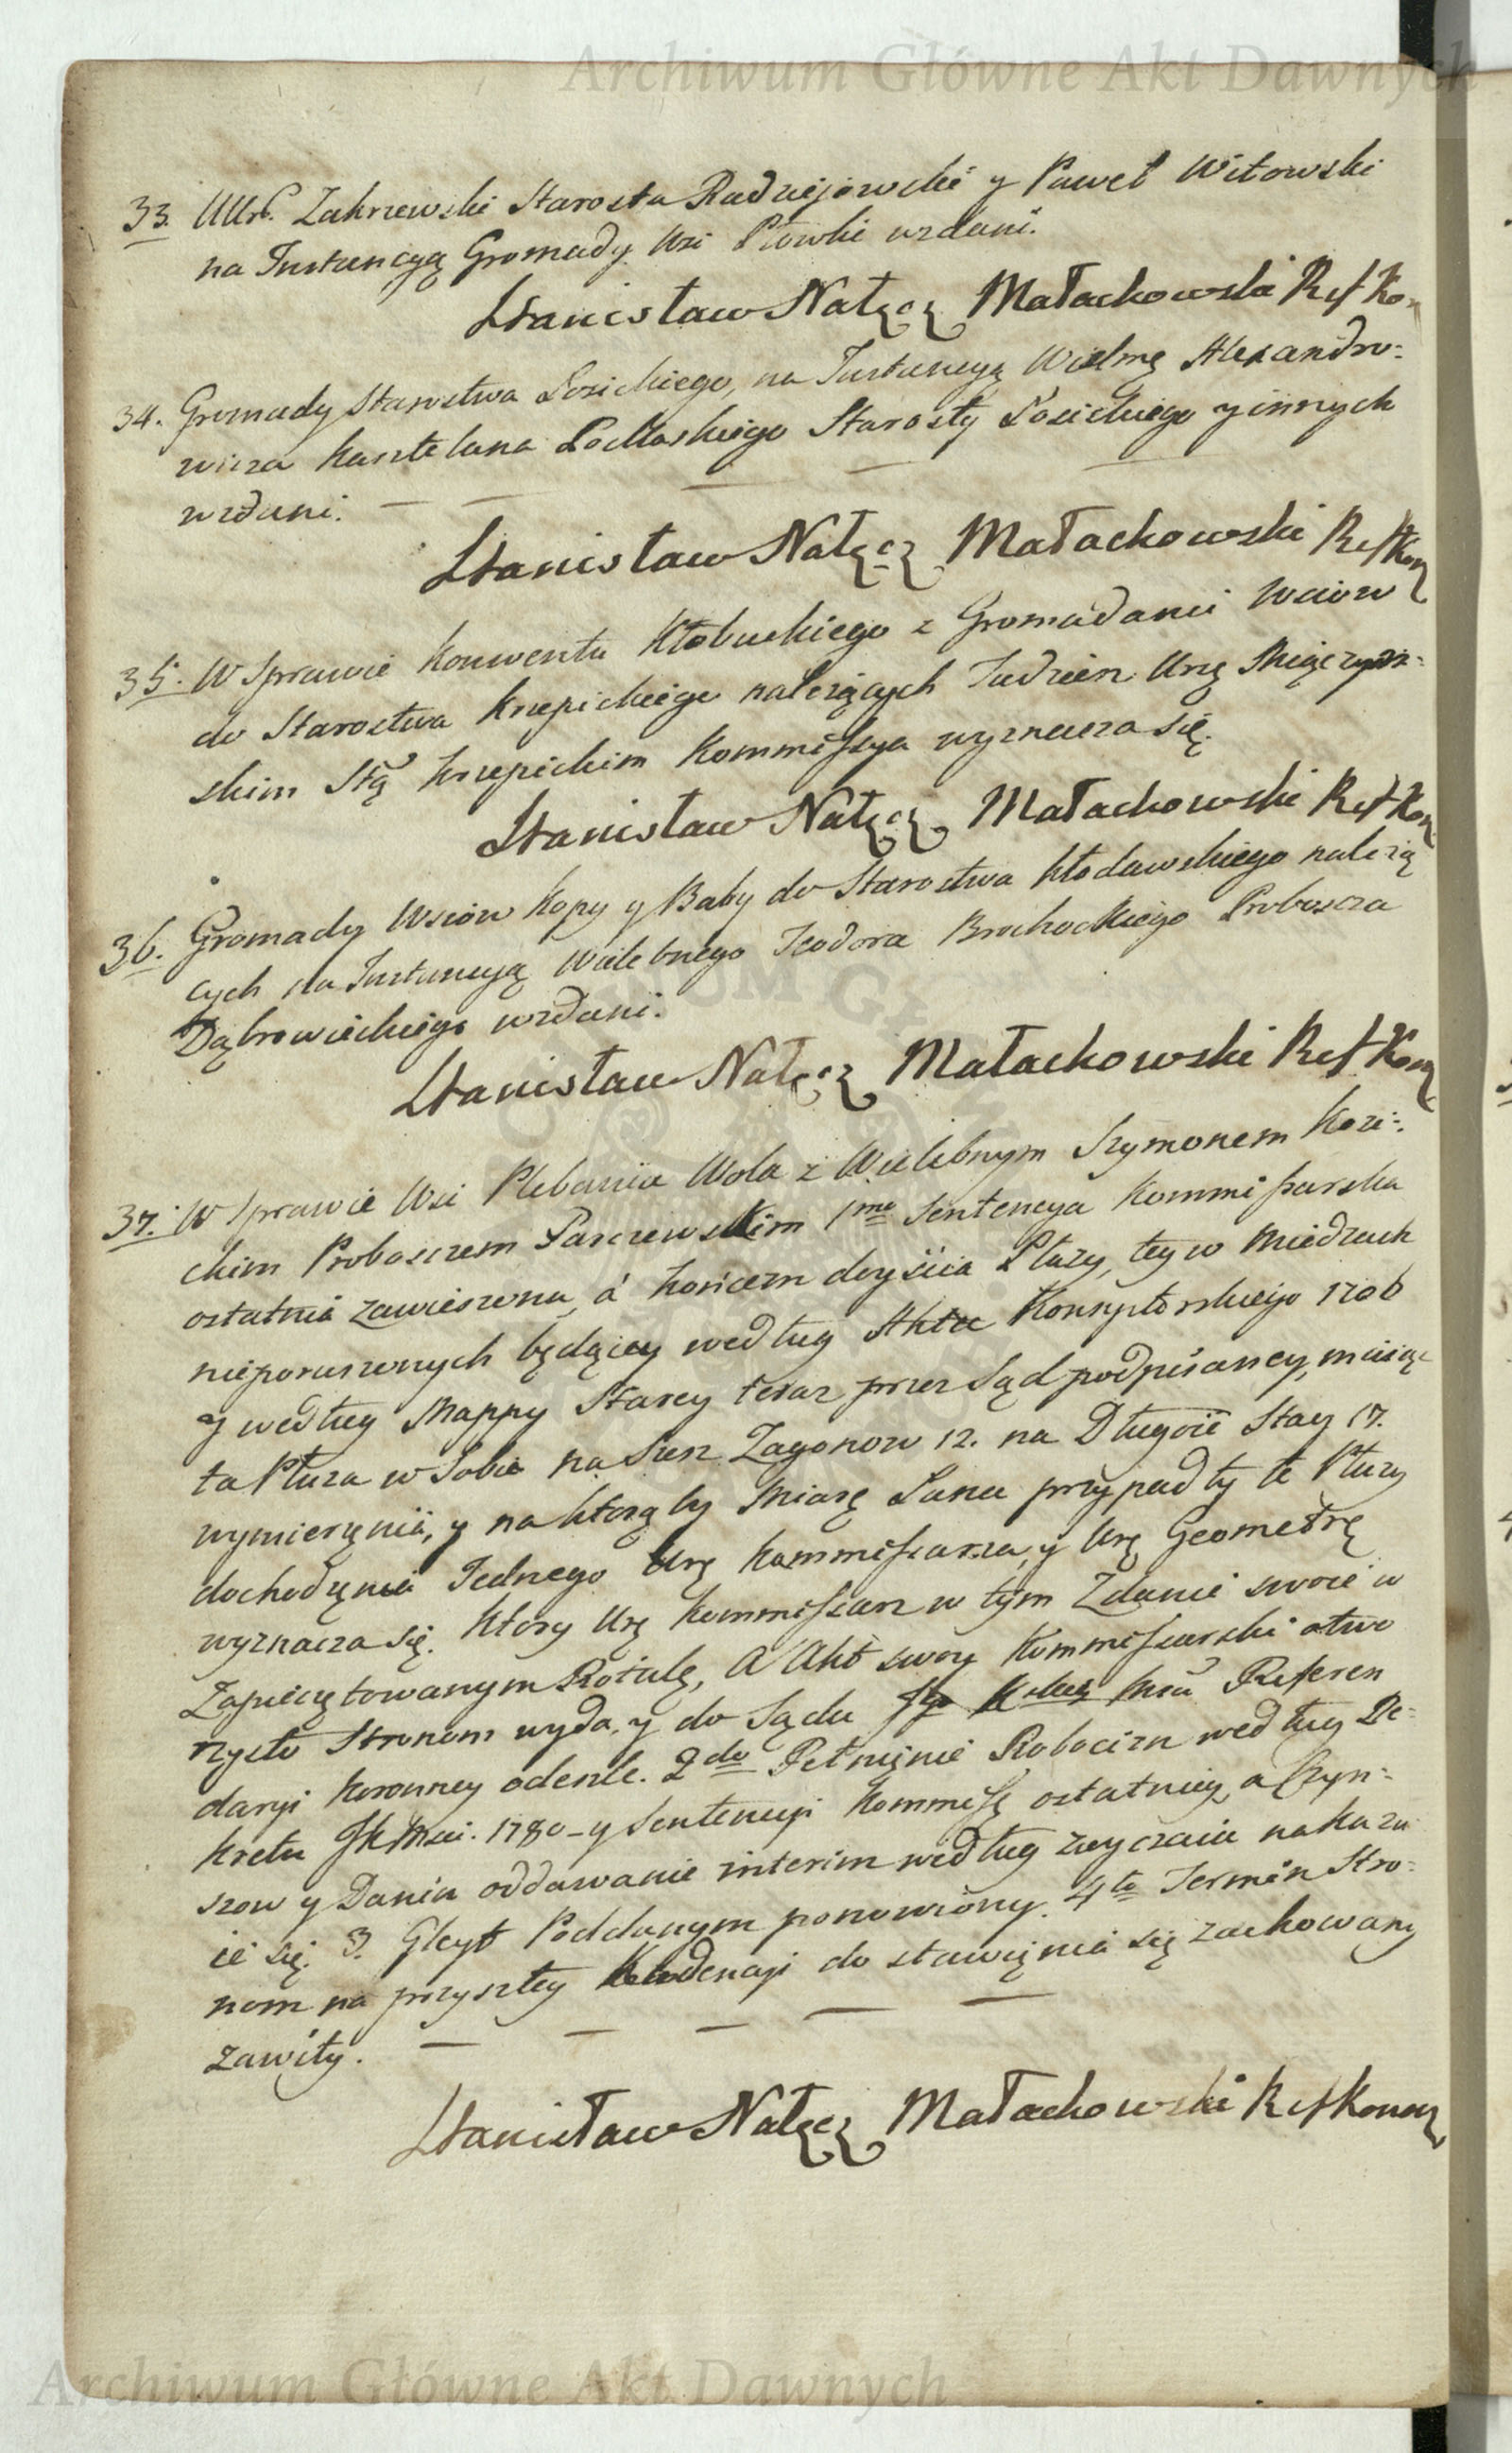 Archiwum Główne Akt Dawnych
33. UUr. Zakrzewski Starosta Radziejowski y Paweł Witowski
na Instancyą Gromady Wsi Płowki wzdani.
Stanisław Nałęcz Małachowski Ref Ko
34. Gromady Starostwa Łosickiego, na Instancyą Wielmę Alexandro=
wicza Kasztelana Podlaskiego Starosty Łosickiego y innych
wzdani.
Stanisław Nałęcz Małachowski Ref Kor
35. W Sprawie Konwentu Kłobuckiego z Gromadami Wsiow
do Starostwa Krzepickiego należących Sudzien Urę Męczyń=
skim Stą Krzepickim Kommissya wyznacza się.
Stanisław Nałęcz Małachowski Ref Kor
36. Gromady Wsiow Kopy y Baby do Starostwa Kłodawskiego należą
cych na Instancyą Wielebnego Teodora Brochockiego Proboszcza
Dąbrowieckiego wzdani.
Stanisław Nałęcz Małachowski Ref Kor
37. W Sprawie Wsi Plebania Wola z Wielebnym Szymonem Kozi=
ckim Proboszczem Parczewskim 1mo Sentencya Kommissarska
ostatnia zawieszona, á końcem doyścia Płuzy, tey w Miedzach
nieporuszonych będącey według Aktu Konsyktorskiego 1706
y według Mappy Starey teraz przez Sąd podpisaney, maiąc
ta Płuza w Sobie na Szerz Zagonow 12. na Długość Stay 17.
wymierzenia, y na ktorąby Miarę Łanu przypadły te Płuzy
dochodzenia Jednego Urę Kommissarza, y Urę Geometrę
wyznacza się. Ktory Urę Kommissarz w tym Zdanie swoie w
Zapieczętowanym Rotule, A Akt swoy Kommissarski otwo
rzysto Stronom wyda, y do Sądu Mci Referen
daryi Koronney odeszle. 2do Pełnienie Robocizn według De=
kretu JKMci. 1780 y Sentencyi Kommissę ostatniey, a Czyn=
szow y Danin oddawanie interim według zwyczaiu nakazu
ie się. 3. Gleyt Poddanym ponowiony. 4to Termin Stro=
nom na przyszłey Kadencyi do stawienia się zachowany
zawity.
Stanisław Nałęcz Małachowski Ref Koron
Archiwum Główne Akt Dawnych